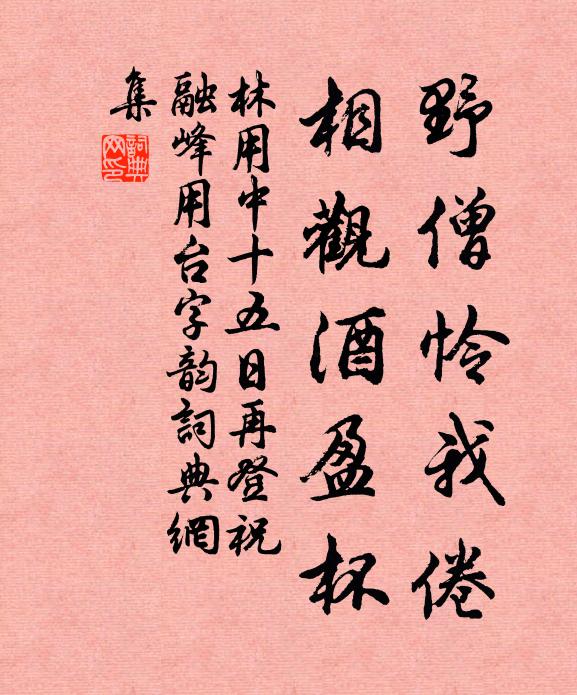 野僧怜我倦
相觀酒盈杯
林用中十五日再登祝
融峰用台字韵詞典網
集
詞典
网印